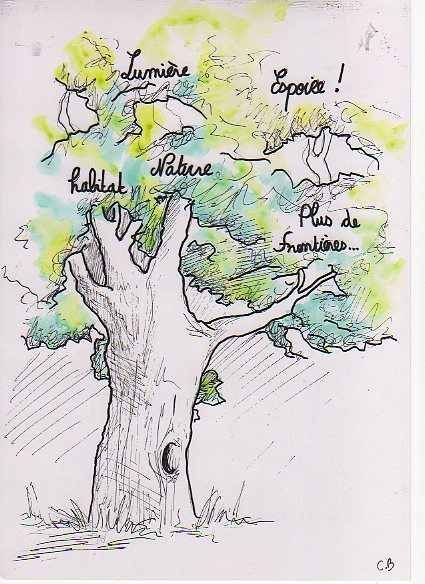 Lumière
Espoire !
Nature
habitat
Plus de
Frontières...
C.B